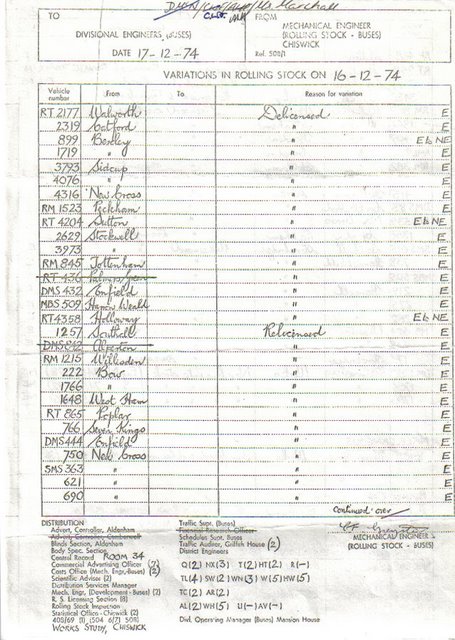 Marshall
TO
DIVISIONAL ENGINEERS (BUSES)
DATE 17-12-74
FROM
MECHANICAL ENGINEER
(ROLLING STOCK - BUSES)
CHISWICK
Ref. 508/1
VARIATIONS IN ROLLING STOCK ON 16-12-74
Vehicle number From To Reason for variation
RT 2177 Walworth Delicensed E
2319 Catford " E
899 Bexley " E & NE
1719 " " E
3793 Sidcup " E
4076 " " E
4316 New Cross " E
RM 1523 Peckham " E
RT 4204 Sutton " E & NE
2629 Stockwell " E
3973 " " E
RM 845 Tottenham " E
RT 436 Palmers Green " E
DMS 432 Enfield " E
MBS 509 Harrow Weald " E
RT 4358 Holloway " E & NE
1257 Southall Relicensed E
DMS 842 Alperton " E
RM 1215 Willesden " E
222 Bow " E
1766 " " E
1648 West Ham " E
RT 865 Poplar " E
766 Seven Kings " E
DMS 444 Enfield " E
750 New Cross " E
SMS 363 " " E
621 " " E
690 " " E
Continued over
DISTRIBUTION
Advert. Controller, Aldenham
Advert. Controller, Camberwell
Blinds Section, Aldenham
Body Spec. Section
Control Record ROOM 34
Commercial Advertising Officer (2)
Costs Office (Mech. Engr. Buses) (2)
Scientific Adviser (2)
Distribution Services Manager
Mech. Engr. (Development - Buses) (2)
R. S. Licensing Section (8)
Rolling Stock Inspection
Statistical Office - Chiswick (2)
405/69 (1), (504 6/7) 508)
WORKS STUDY, CHISWICK
Traffic Supt. (Buses)
Financial Research Officer
Schedules Supt. Buses
Traffic Auditor, Griffith House (2)
District Engineers
C(2) NX(3) T(2) HT(2) R(-)
TL(4) SW(2) WN(3) W(5) HW(5)
TC(2) AR(2)
AL(2) WH(5) U(-) AV(-)
Divl. Operating Manager (Buses) Mansion House
MECHANICAL ENGINEER
(ROLLING STOCK - BUSES)